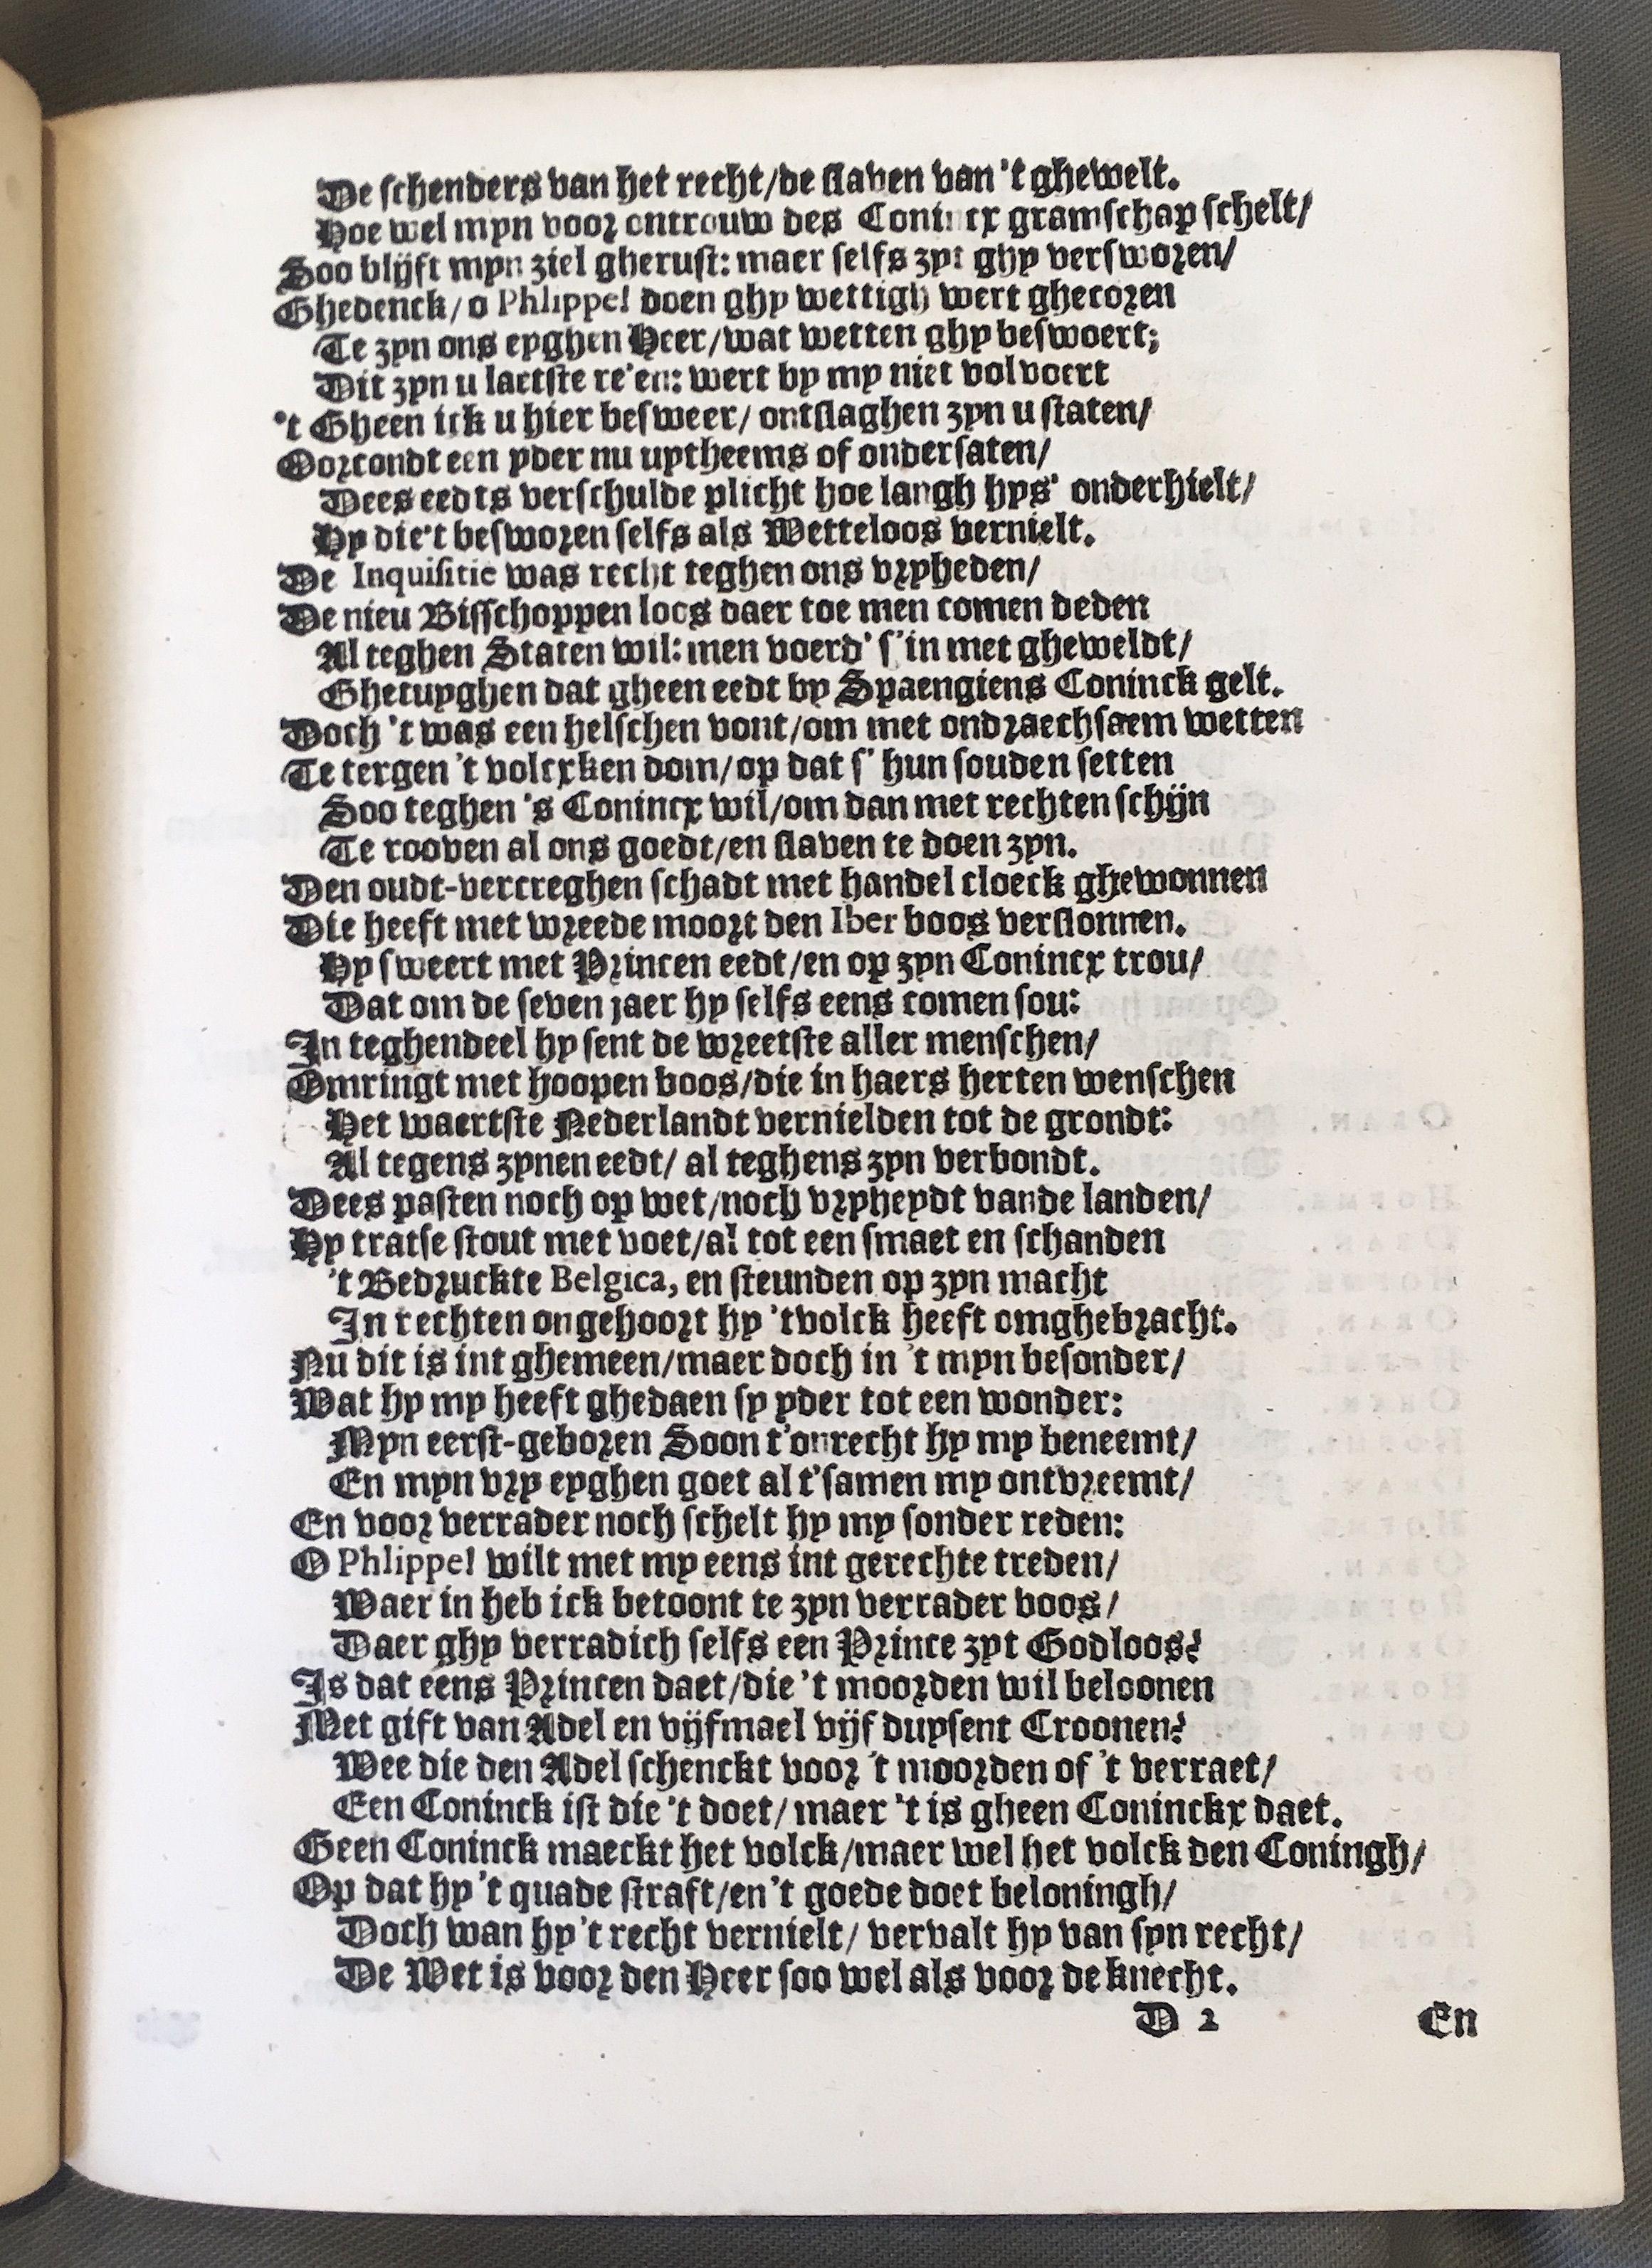 De schenders van het recht/de slaven van 't ghewelt.
Hoe wel myn voor ontrouw des Conincx gramschap schelt/
Soo blijft myn ziel gherust: maer selfs zyt ghy versworen/
Ghedenck/o Phlippe! doen ghy wettigh wert ghecoren
Te zyn ons eyghen Heer/wat wetten ghy beswoert;
Dit zyn u laetste re'en: wert by my niet volvoert
't Gheen ick u hier besweer/ ontslaghen zyn u staten/
Oorcondt een yder nu uytheems of ondersaten/
Dees eedts verschulde plicht hoe langh hys' onderhielt/
Hy die't besworen selfs als Wetteloos vernielt.
De Inquisitie was recht teghen ons vryheden/
De nieu Bisschoppen loos daer toe men comen deden
Al teghen Staten wil: men voerd' s'in met gheweldt/
Ghetuyghen dat gheen eedt by Spaengiens Coninck gelt.
Doch 't was een helschen vont/om met ondraechsaem wetten
Te tergen 't volcxken dom/op dat s' hun souden setten
Soo teghen 's Conincx wil/om dan met rechten schijn
Te rooven al ons goedt/en slaven te doen zyn.
Den oudt-vercreghen schadt met handel cloeck ghewonnen
Die heeft met wreede moort den Iber boos verslonnen.
Hy sweert met Princen eedt/en op zyn Conincx trou/
Dat om de seven jaer hy selfs eens comen sou:
In teghendeel hy sent de wreetste aller menschen/
Omringt met hoopen boos/die in haers herten wenschen
Het waertste Nederlandt vernielden tot de grondt:
Al tegens zynen eedt/ al teghens zyn verbondt.
Dees pasten noch op wet/noch vryheydt vande landen/
Hy tratse stout met voet/al tot een smaet en schanden
't Bedruckte Belgica, en steunden op zyn macht
In rechten ongehoort hy 'tvolck heeft omghebracht.
Nu dit is int ghemeen/maer doch in 't myn besonder/
Wat hy my heeft ghedaen sy yder tot een wonder:
Myn eerst-geboren Soon t'onrecht hy my beneemt/
En myn vry eyghen goet al t'samen my ontvreemt/
En voor verrader noch schelt hy my sonder reden:
O Phlippe! wilt met my eens int gerechte treden/
Waer in heb ick betoont te zyn verrader boos/
Daer ghy verradich selfs een Prince zyt Godloos?
Is dat eens Princen daet/die 't moorden wil beloonen
Met gift van Adel en vijfmael vijf duysent Croonen?
Wee die den Adel schenckt voor 't moorden of 't verraet/
Een Coninck ist die 't doet/ maer 't is gheen Coninckx daet.
Geen Coninck maeckt het volck/maer wel het volck den Coningh/
Op dat hy 't quade straft/en't goede doet beloningh/
Doch wan hy't recht vernielt/ vervalt hy van syn recht/
De Wet is voor den Heer soo wel als voor de knecht.
D 2 En